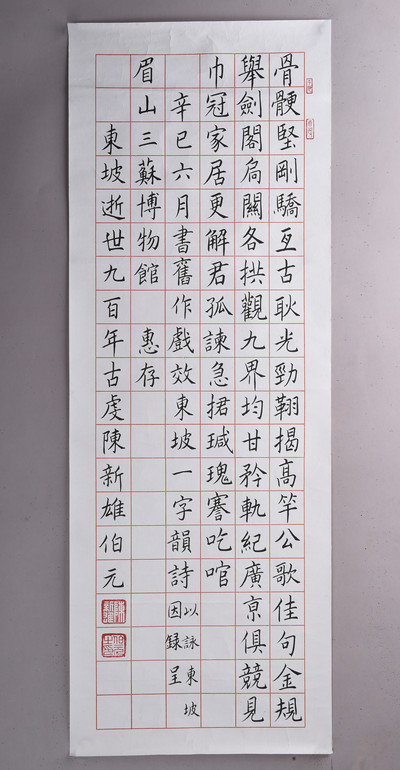 骨骾堅剛驕亙古耿光勁揭高竿公歌佳句金規
舉劍閣扃關各拱觀九界均甘矜軌紀廣亰俱競見
巾冠家居更解君孤諫急捃瑊瑰謇吃
辛巳六月書舊作戲效東坡一字韻詩
以詠東坡
因録呈
眉山三蘇博物館 惠存
東坡逝世九百年古虔陳新雄伯元